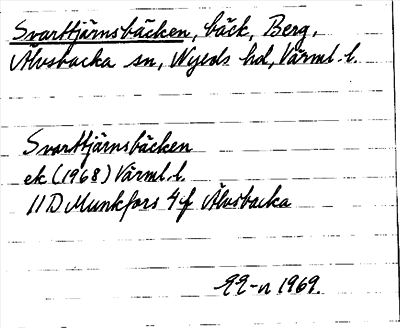 Svarttjärnsbäcken, bäck, Berg,
Älvsbacka sn, Nyeds hd, Värml. l.
Svarttjärnsbäcken
ek (1968) Värml. l.
11D Munkfors 4f Älvsbacka
1969.